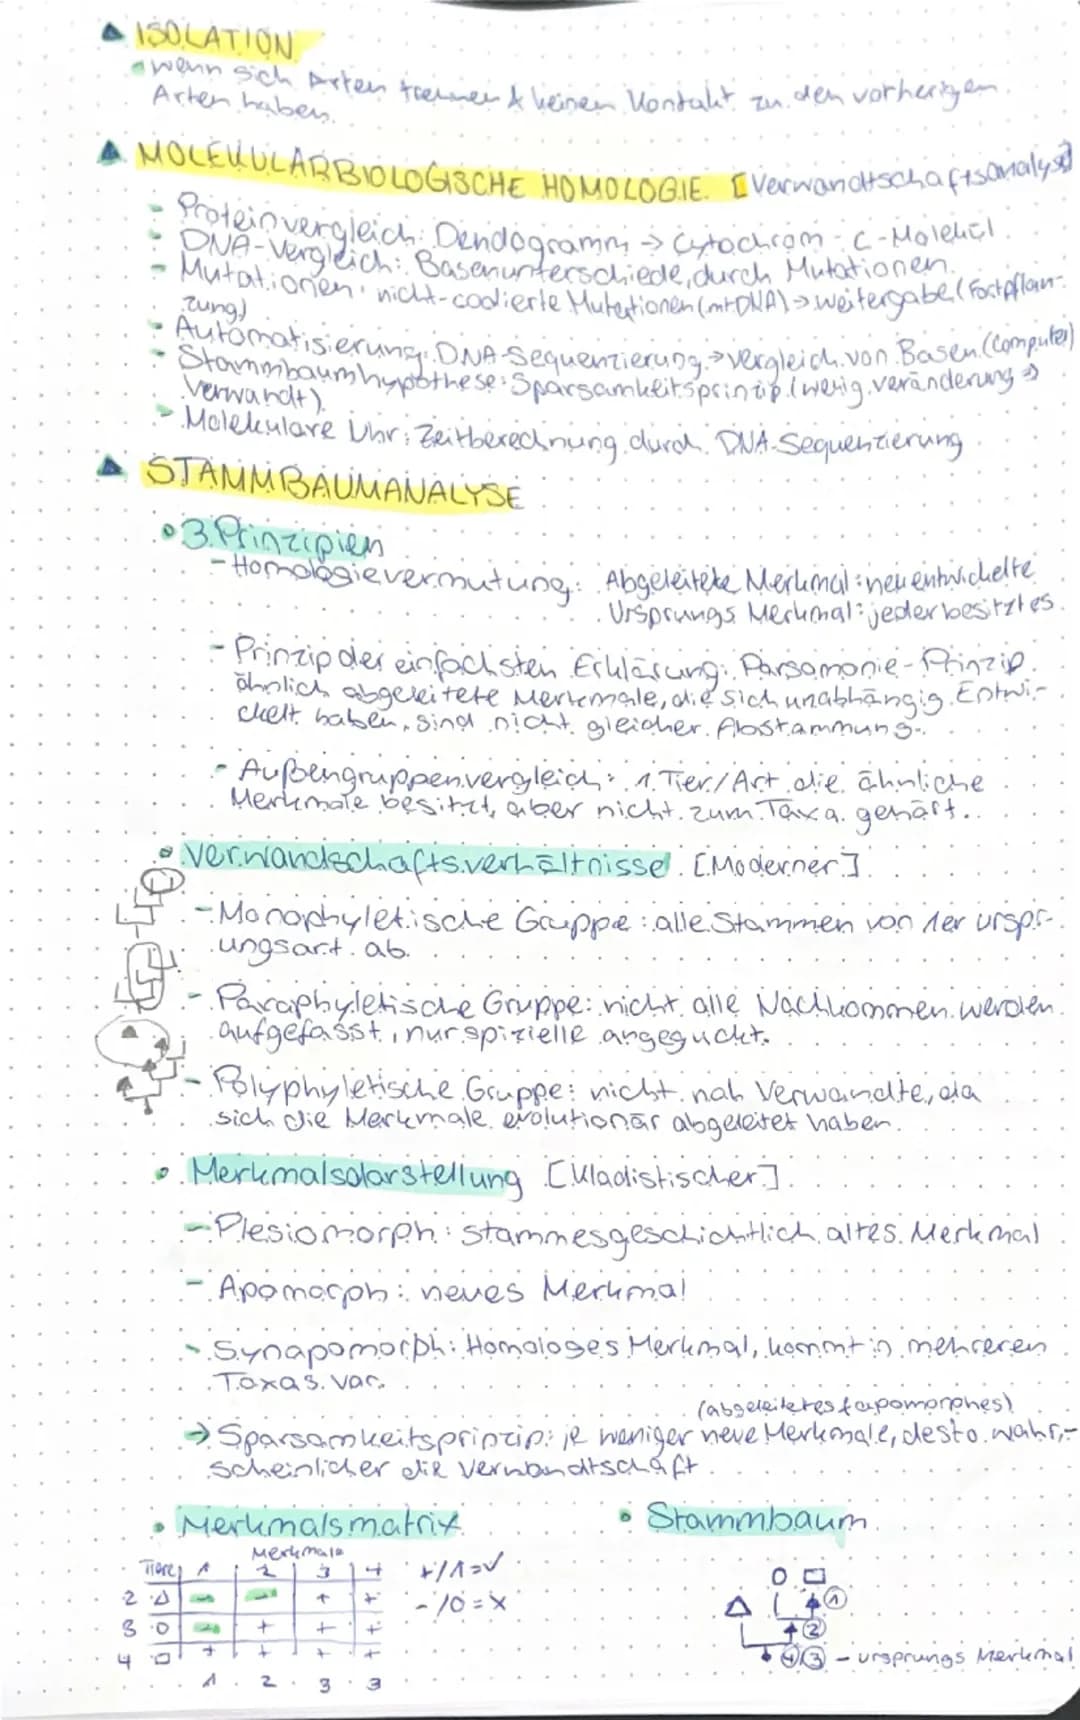 ISOLATION
wenn sich Arten trennen & keinen Kontakt zu den vorherigen
Arten haben.
MOLEKULARBIOLOGISCHE HOMOLOGIE [Verwandtschaftsanalyse]
- Proteinvergleich: Dendogramm → Cytochrom-C-Molekül
- DNA-Vergleich: Basenunterschiede, durch Mutationen
- Mutationen: nicht-codierte Mutationen (mtDNA) → weitergabe (Fortpflan-
zung)
- Automatisierung: DNA-Sequenzierung → vergleich von Basen (Computer)
- Stammbaumhypothese: Sparsamkeitsprinzip (wenig veränderung →
verwandt)
- Molekulare Uhr: Zeitberechnung durch DNA-Sequenzierung
STAMMBAUMANALYSE
3 Prinzipien
- Homologievermutung: Abgeleitete Merkmal: neu entwickelte
Ursprungs Merkmal: jeder besitzt es
- Prinzip der einfachsten Erklärung: Parsamonie-Prinzip
ähnlich abgeleitete Merkmale, die sich unabhängig Entwi-
ckelt haben, sind nicht gleicher Abstammung.
- Außengruppenvergleich: 1 Tier/Art die ähnliche
Merkmale besitzt, aber nicht zum Taxa gehört.
Verwandschaftsverhältnisse [Moderner]
- Monophyletische Gruppe: alle Stammen von 1er urspr-
ungsart ab.
- Paraphyletische Gruppe: nicht alle Nachkommen werden
aufgefasst, nur spizielle angeguckt.
- Polyphyletische Gruppe: nicht nah Verwandte, da
sich die Merkmale evolutionär abgeleitet haben.
Merkmalsdarstellung [Kladistischer]
- Plesiomorph: stammesgeschichtlich altes Merkmal
- Apomorph: neues Merkmal
- Synapomorph: Homologes Merkmal, kommt in mehreren
Taxas vor.
(abgeleitetes/apomorphes)
→ Sparsamkeitsprinzip: je weniger neue Merkmale, desto wahr-
scheinlicher die Verwandtschaft
Merkmalsmatrix
Stammbaum
Merkmale
Tiere 1 2 3 4
+/1=✓
2 △ - - + +
-/0=x
3 O - + + +
4 □ + + + +
1 2 3 3
O □
△ ①
②
④③ - ursprungs Merkmal